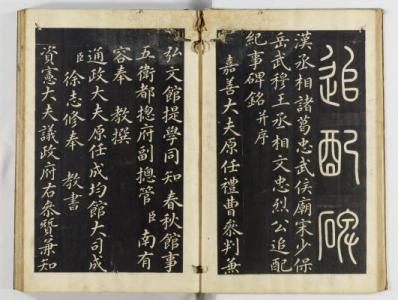 追配碑
漢丞相諸葛忠武侯廟宋少保
岳武穆王丞相文忠烈公追配
紀事碑銘并序
嘉善大夫原任禮曹參判兼
弘文館提學同知春秋館事
五衛都摠府副摠管臣南有
容奉教撰
通政大夫原任成均館大司成
臣徐志修奉教書
資憲大夫議政府右參贊兼知